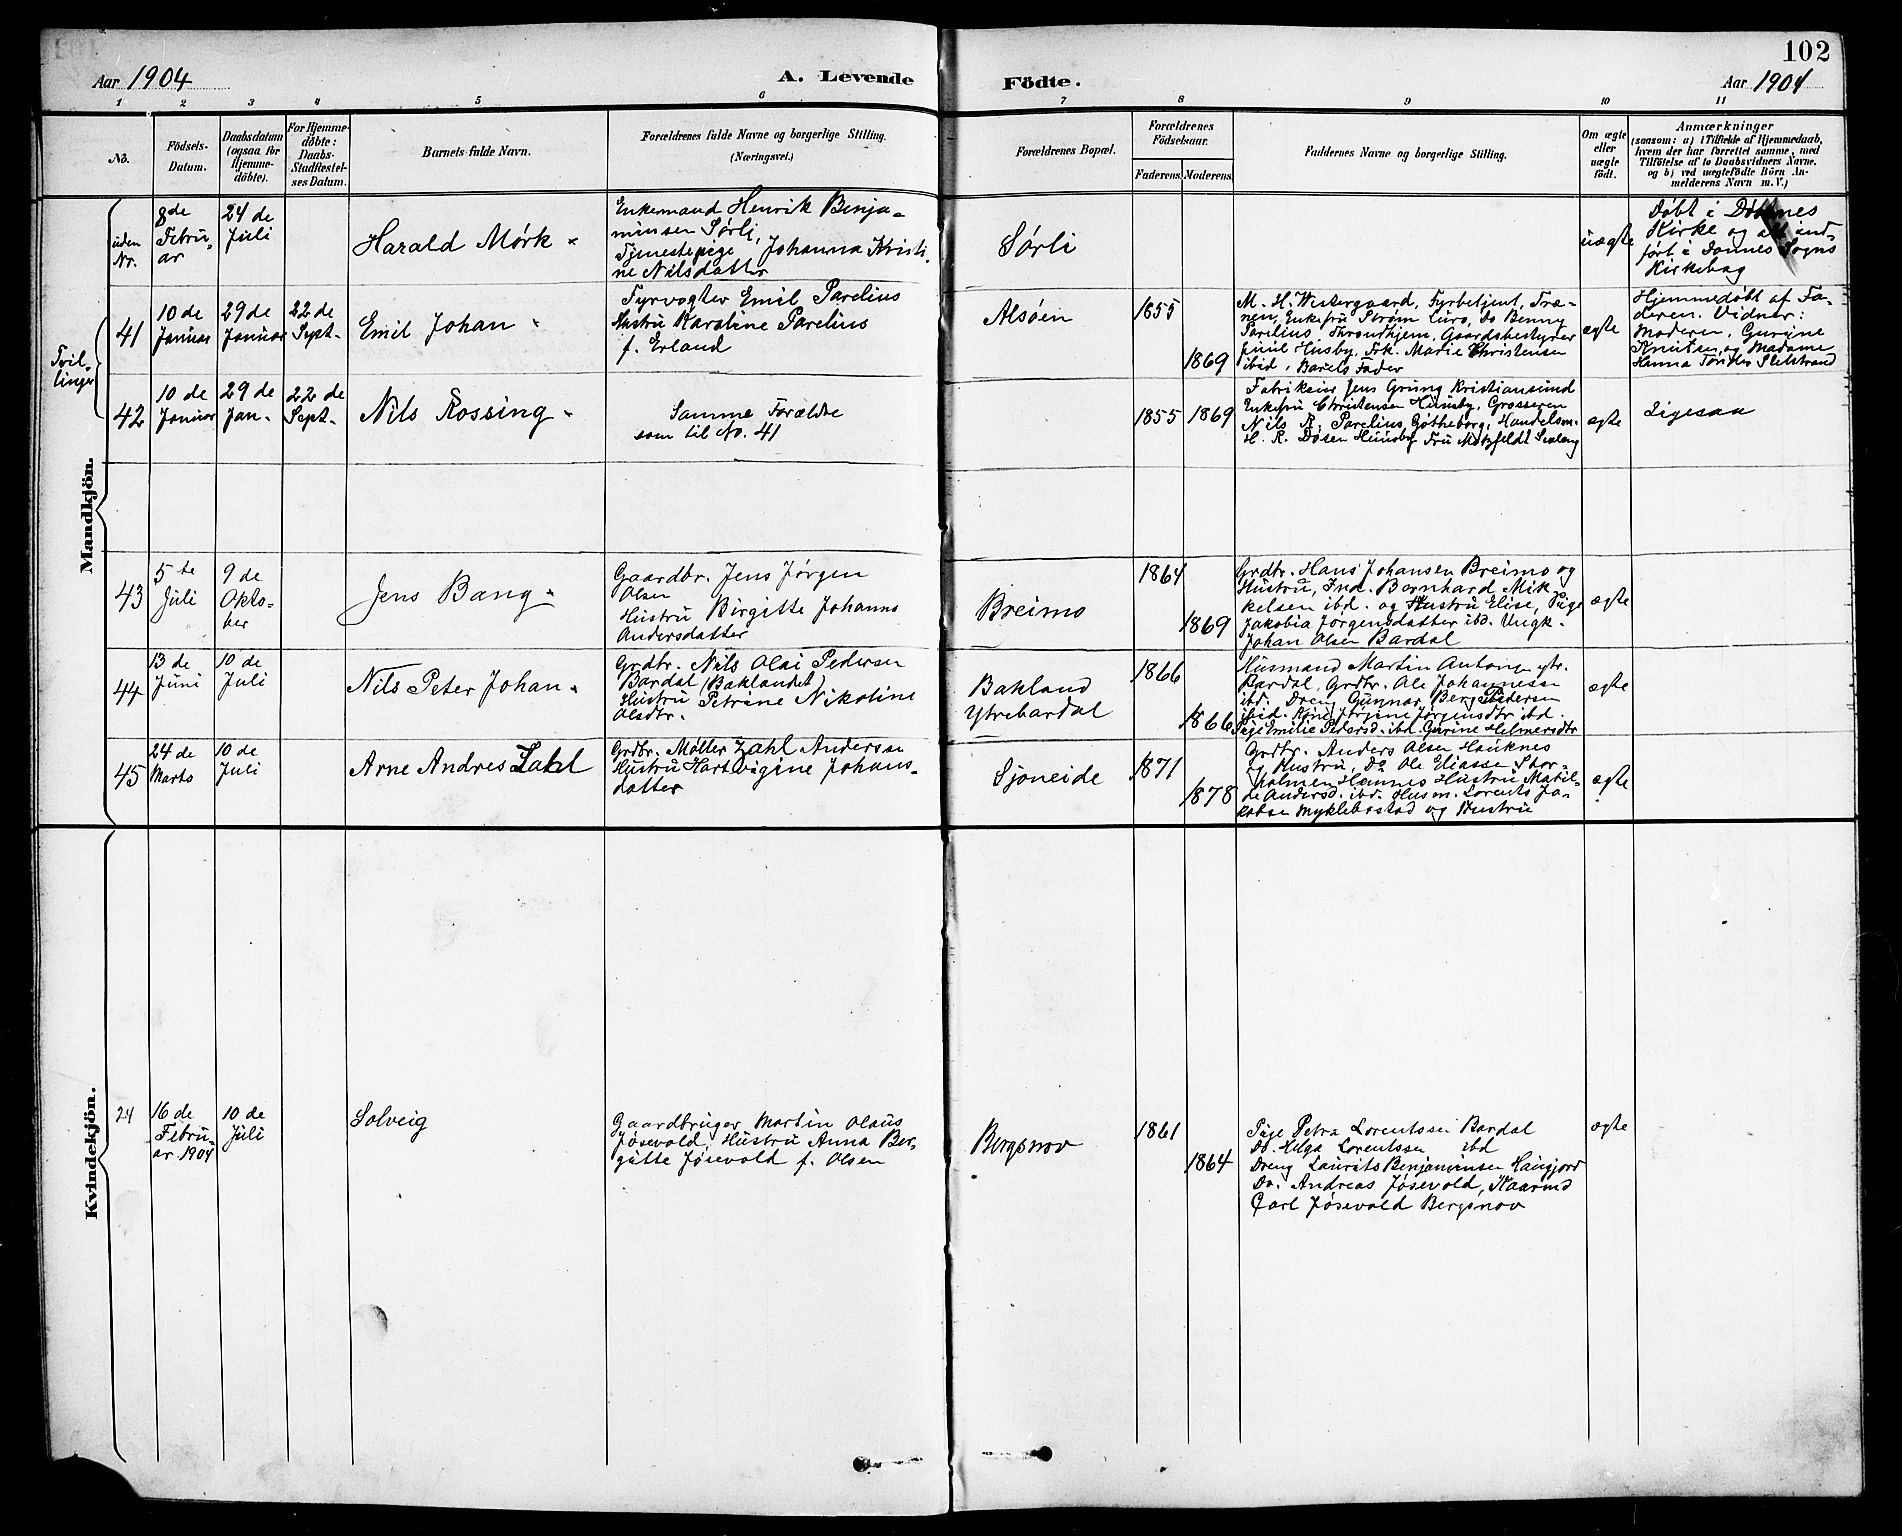 102
Aar 1904
A. Levende
Födte.
Aar 1904
1 2 3 4 5 6 7 8 9 10 11
No.
Födsels-
Datum.
Daabsdatum
(ogsaa for
Hjemme-
döbte).
For Hjemme-
döbte:
Daabs-
Stadfæstel-
ses Datum.
Barnets fulde Navn.
Forældrenes fulde Navne og borgerlige Stilling.
(Næringsvei.)
Forældrenes Bopæl.
Forældrenes
Födselsaar.
Faderens. Moderens.
Faddernes Navne og borgerlige Stilling.
Om ægte
eller
uægte
födt.
Anmærkninger
(saasom: a) i Tilfælde af Hjemmedaab,
hvem der har forrettet samme, med
Tilföielse af to Daabsvidners Navne.
og b) ved uægtefödte Börn An-
melderens Navn m. V.)
Mandkjön.
uden
Nr.
8de
Febru-
ar
24 de
Juli
Harald Mørk
Enkemand Henrik Benja-
minsen Sørli,
Tjenestepige Johanna Kristi-
ne Nilsdatter
Sørli
uægte
Døbt i
Kirke og
ført i Dønnes Sogns
Kirkebog
Tvil-
linger
41
10 de
Januar
29 de
Januar
22 de
Sept-
Emil Johan
Fyrvogter Emil Parelius
Hustru Karoline Parelius
f. Erland
Alsøen
1855
1869
M. H. Westergaard, Fyrbetjent, Træ-
nen, Enkefru Strøm Lurø, do Benny
Parelius, Throndhjem, Gaardsbestyrer
Husby, Frk. Marie Christensen
ibid, Barnets Fader
ægte
Hjemmedøbt af Fa-
deren. Vidner:
Moderen, Gurine
Knutsen og Madame
Hanna
42
10 de
Januar
29 de
Jan-
22 de
Sept-
Nils Rossing
Samme Forældre
som til No. 41
1855 1869
Fabrikeier Jens Grung Kristiansund
Enkefru Christensen Huusby, Grosseren
Nils R. Parelius, Gøtheborg, Handelsm-
H. R. Døsen Huusby Fru Motzfeldt
ægte
Ligesaa
43
5 te
Juli
9 de
Okto-
ber
Jens Bang
Gaardbr. Jens Jørgen
Olsen
Hustru Birgitte Johanna
Andersdatter
Breimo
1864
1869
Grdbr. Hans Johansen Breimo og
Hustru, Ind. Bernhard Mik-
kelsen ibd. og Hustru Elise, Pige
Jakobia Jørgensdatter ibd. Ungk.
Johan Olsen Bardal
ægte
44
13 de
Juni
10 de
Juli
Nils Peter Johan
Grdbr. Nils Olai Pedersen
Bardal (Baklandet)
Hustru Petrine Nikoline
Olsdtr.
Bakland
Ytrebardal
1866
1866
Husmand Martin Anton ytr.
Bardal, Grdbr. Ole Johannessen
ibd. Dreng Gunnar Berg Pedersen
ibid. Kone Jørgine Jørgensdtr ibd.
Pige Emilie Pedersd. ibd. Gurine Helmersdtr
ægte
45
24 de
Marts
10 de
Juli
Arne Andres Zahl
Grdbr. Møller Zahl Andersen
Hustru Hartvigine Johans-
datter
Sjøneide
1871
1878
Grdbr. Anders Olsen Hauknes
og Hustru, Do Ole Eliassen Stor-
holmen Hæmnes Hustru Matil-
de Andersd. ibd. Husm. Lorents Ja-
kobsen Myklebostad og Hustru
ægte
Kvindekjön.
24
16 de
Febru-
ar 1904
10 de
Juli
Solveig
Gaardbruger Martin Olaus
Jøsevold, Hustru Anna Ber-
gitte Jøsevold f. Olsen
Bergsnov
1861
1864
Pige Petra Lorentssen Bardal
Do. Helga Lorentssen ibd
Dreng Laurits Benjaminsen Haugjord
Do. Andreas Jøsevold,
Carl Jøsevold Bergsnov
ægte